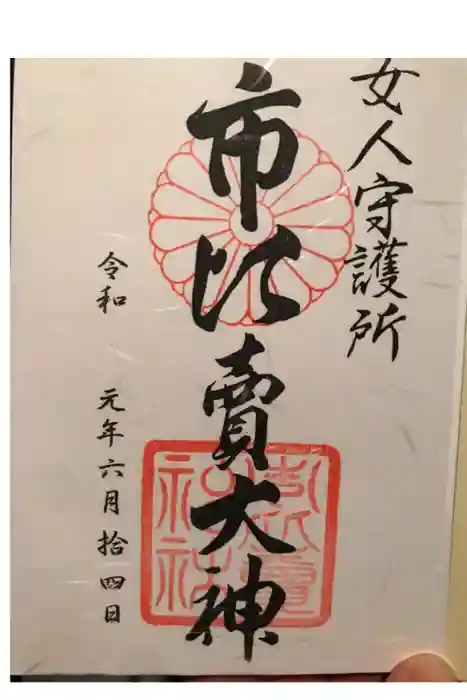 女人守護所
市比賣大神
令和 元年六月拾四日
市比賣神社